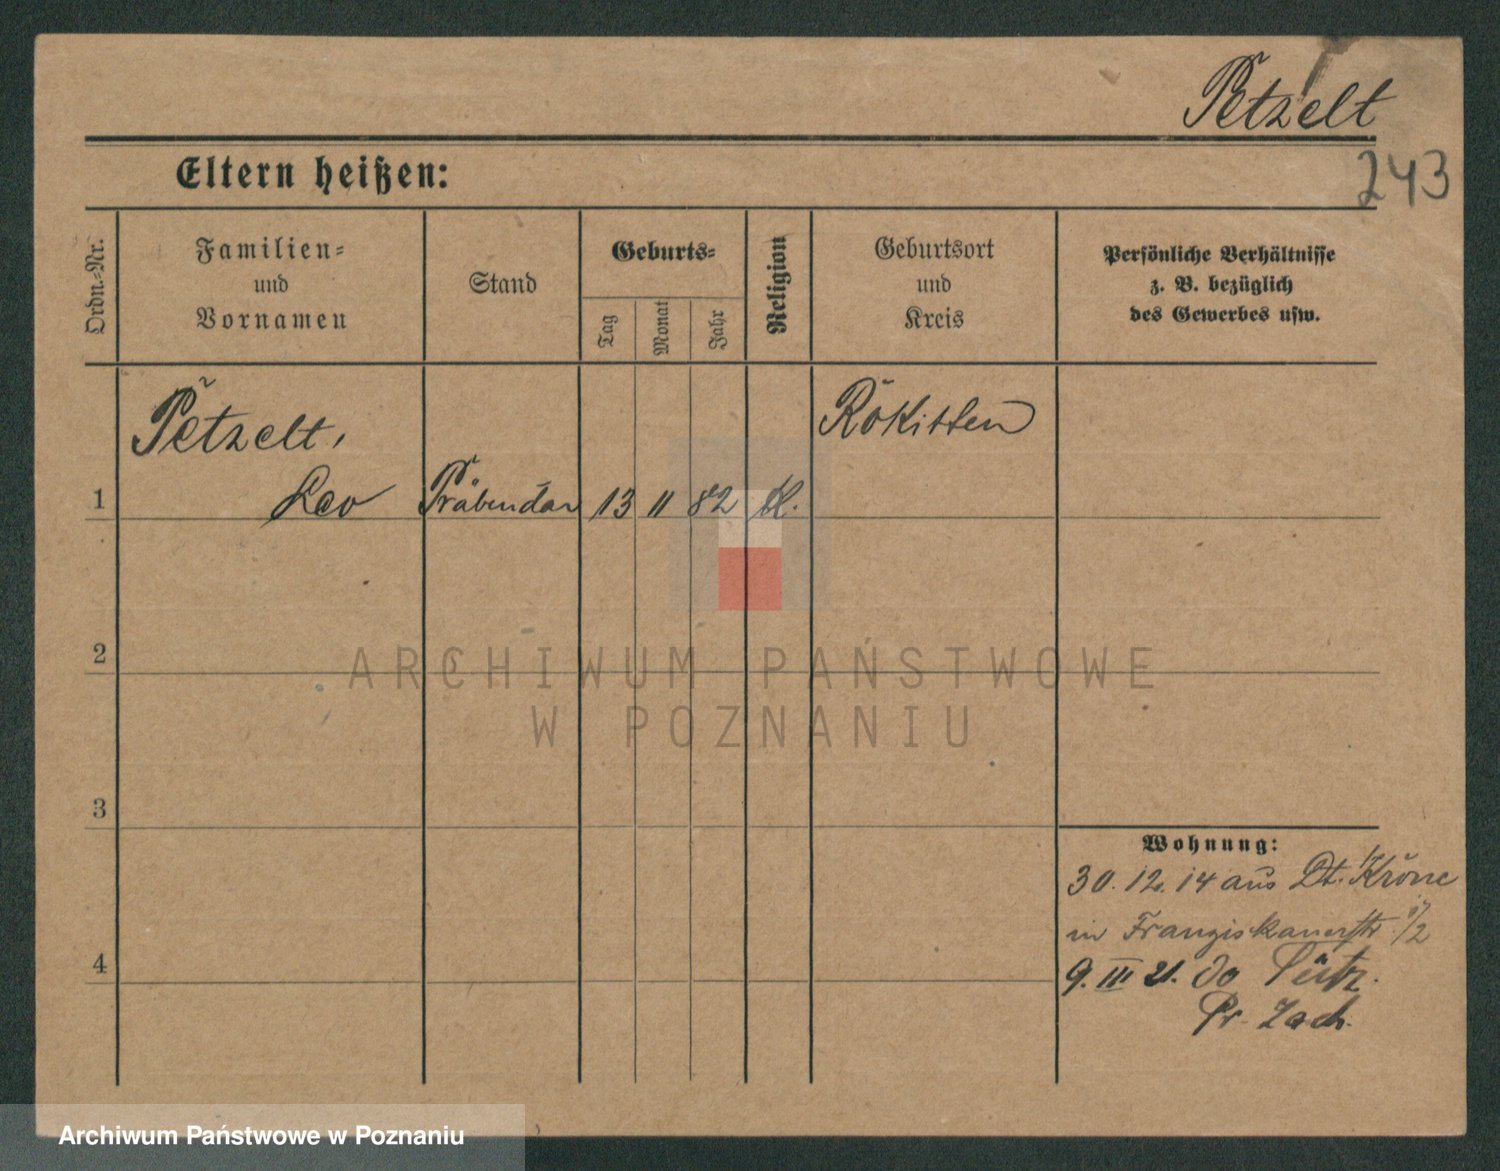 Petzelt
243
Eltern heißen:
Ordn.-Nr.
Familien-
und
Vornamen
Stand
Geburts-
Tag
Monat
Jahr
Religion
Geburtsort
und
Kreis
Persönliche Verhältnisse
z. B. bezüglich
des Gewerbes usw.
Petzelt,
Rokitten
1 Leo Präbendar 13 11 82 K.
2
3
4
Wohnung:
30. 12. 14 aus Dt. Krone
in Franziskanerstr. 1/2
9. III 21. do
Pr.
ARCHIWUM PAŃSTWOWE
W POZNANIU
Archiwum Państwowe w Poznaniu